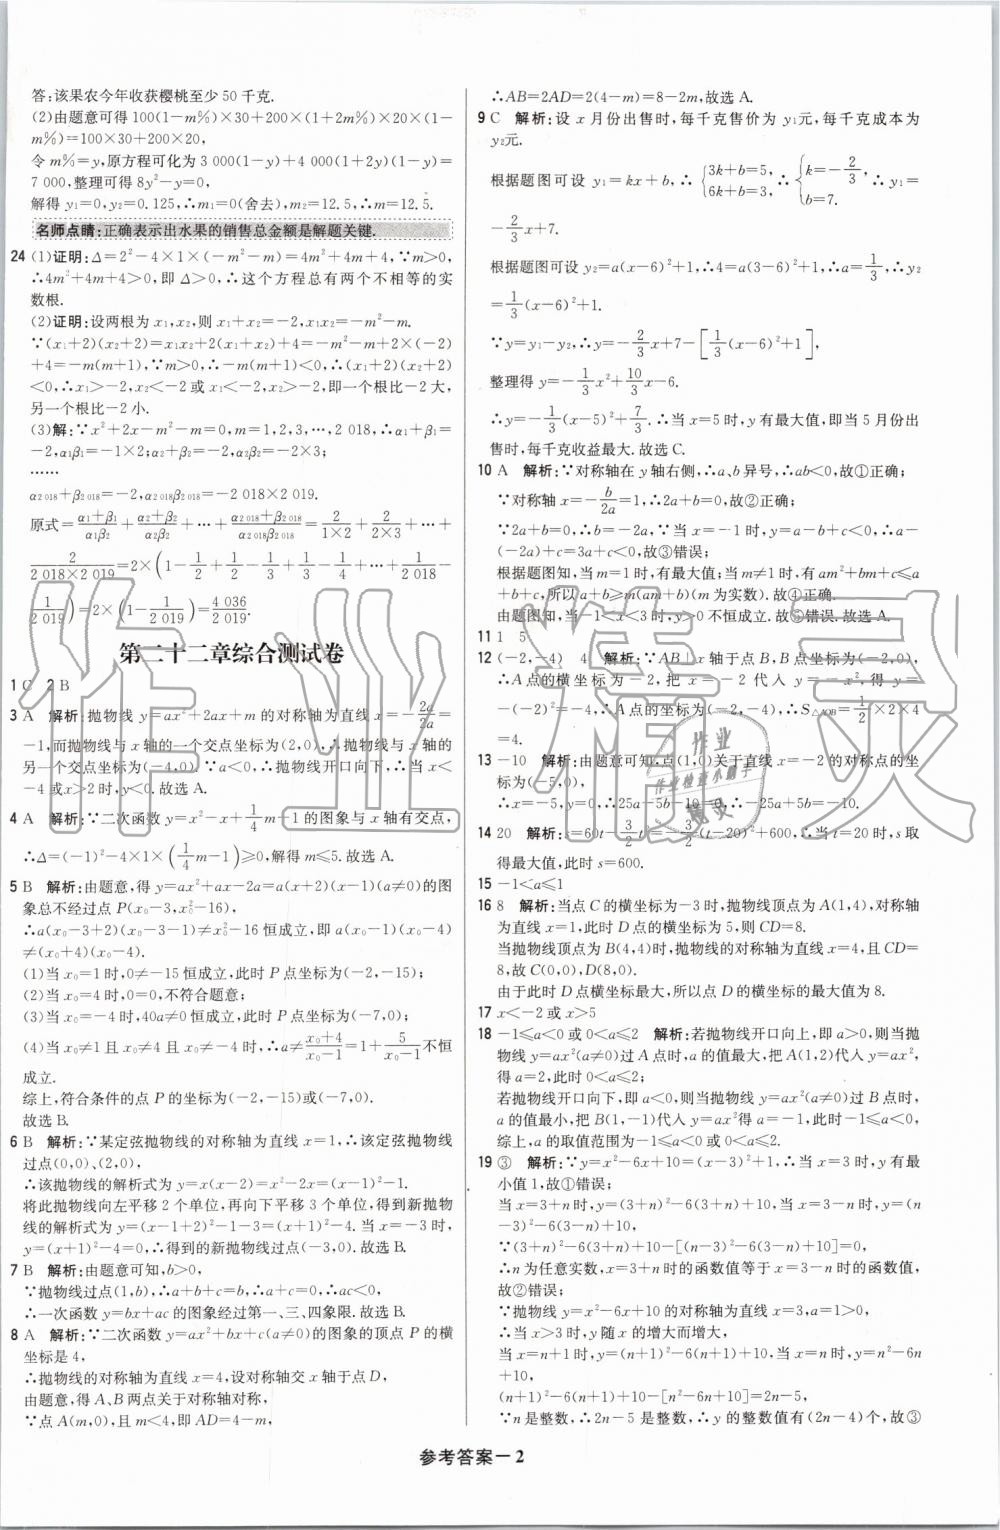 答:该果农今年收获樱桃至少50千克.
(2)由题意可得100(1-m%)×30+200×(1+2m%)×20×(1-
m%)=100×30+200×20,
令m%=y,原方程可化为3 000(1-y)+4 000(1+2y)(1-y)=
7 000,整理可得8y²-y=0,
解得y₁=0,y₂=0.125,∴m₁=0(舍去),m₂=12.5,∴m=12.5.
名师点睛:正确表示出水果的销售总金额是解题关键.
24 (1)证明:Δ=2²-4×1×(-m²-m)=4m²+4m+4,∵m>0,
∴4m²+4m+4>0,即Δ>0,∴这个方程总有两个不相等的实
数根.
(2)证明:设两根为x₁,x₂,则x₁+x₂=-2,x₁x₂=-m²-m.
∵(x₁+2)(x₂+2)=x₁x₂+2(x₁+x₂)+4=-m²-m+2×(-2)
+4=-m(m+1),∵m>0,∴-m(m+1)<0,∴(x₁+2)(x₂+2)
<0,∴x₁>-2,x₂<-2或x₁<-2,x₂>-2,即一个根比-2大,
另一个根比-2小.
(3)解:∵x²+2x-m²-m=0,m=1,2,3,…,2 018,∴α₁+β₁=
-2,α₁β₁=-1×2;α₂+β₂=-2,α₂β₂=-2×3;
……
α₂₀₁₈+β₂₀₁₈=-2,α₂₀₁₈β₂₀₁₈=-2 018×2 019.
原式=(α₁+β₁)/(α₁β₁)+(α₂+β₂)/(α₂β₂)+…+(α₂₀₁₈+β₂₀₁₈)/(α₂₀₁₈β₂₀₁₈)=2/(1×2)+2/(2×3)+…+
2/(2 018×2 019)=2×(1-1/2+1/2-1/3+1/3-1/4+…+1/2 018-
1/2 019)=2×(1-1/2 019)=4 036/2 019.
第二十二章综合测试卷
1 C 2 B
3 A 解析:抛物线y=ax²+2ax+m的对称轴为直线x=-2a/2a=
-1,而抛物线与x轴的一个交点坐标为(2,0),∴抛物线与x轴的
另一个交点坐标为(-4,0).∵a<0,∴抛物线开口向下,∴当x<
-4或x>2时,y<0.故选A.
4 A 解析:∵二次函数y=x²-x+1/4m-1的图象与x轴有交点,
∴Δ=(-1)²-4×1×(1/4m-1)≥0,解得m≤5.故选A.
5 B 解析:由题意,得y=ax²+ax-2a=a(x+2)(x-1)(a≠0)的图
象总不经过点P(x₀-3,x₀²-16),
∴a(x₀-3+2)(x₀-3-1)≠x₀²-16恒成立,即a(x₀-1)(x₀-4)
≠(x₀+4)(x₀-4).
(1)当x₀=1时,0≠-15恒成立,此时P点坐标为(-2,-15);
(2)当x₀=4时,0=0,不符合题意;
(3)当x₀=-4时,40a≠0恒成立,此时P点坐标为(-7,0);
(4)当x₀≠1且x₀≠4且x₀≠-4时,∴a≠(x₀+4)/(x₀-1)=1+5/(x₀-1)不恒
成立.
综上,符合条件的点P的坐标为(-2,-15)或(-7,0).
故选B.
6 B 解析:∵某定弦抛物线的对称轴为直线x=1,∴该定弦抛物线
过点(0,0)、(2,0),
∴该抛物线的解析式为y=x(x-2)=x²-2x=(x-1)²-1.
将此抛物线向左平移2个单位,再向下平移3个单位,得到新抛物
线的解析式为y=(x-1+2)²-1-3=(x+1)²-4.当x=-3时,
y=(x+1)²-4=0,∴得到的新抛物线过点(-3,0).故选B.
7 B 解析:由题意可知,b>0,
∵抛物线过点(1,b),∴a+b+c=b,∴a+c=0,∴ac<0,
∴一次函数y=bx+ac的图象经过第一、三、四象限.故选B.
8 A 解析:∵二次函数y=ax²+bx+c(a≠0)的图象的顶点P的横
坐标是4,
∴抛物线的对称轴为直线x=4,设对称轴交x轴于点D,
由题意,得A、B两点关于对称轴对称,
∵点A(m,0),且m<4,即AD=4-m,
∴AB=2AD=2(4-m)=8-2m,故选A.
9 C 解析:设x月份出售时,每千克售价为y₁元,每千克成本为
y₂元.
根据题图可设y₁=kx+b,∴{3k+b=5,6k+b=3,∴{k=-2/3,b=7.∴y₁=
-2/3x+7.
根据题图可设y₂=a(x-6)²+1,∴4=a(3-6)²+1,∴a=1/3,∴y₂
=1/3(x-6)²+1.
∵y=y₁-y₂,∴y=-2/3x+7-[1/3(x-6)²+1],
整理得y=-1/3x²+10/3x-6.
∴y=-1/3(x-5)²+7/3.∴当x=5时,y有最大值,即当5月份出
售时,每千克收益最大.故选C.
10 A 解析:∵对称轴在y轴右侧,∴a、b异号,∴ab<0,故①正确;
∵对称轴x=-b/2a=1,∴2a+b=0,故②正确;
∵2a+b=0,∴b=-2a,∵当x=-1时,y=a-b+c<0,∴a-
(-2a)+c=3a+c<0,故③错误;
根据题图知,当m=1时,有最大值;当m≠1时,有am²+bm+c≤a
+b+c,所以a+b≥m(am+b)(m为实数).故④正确.
由题图知,当-1<x<3时,y>0不恒成立.故⑤错误.故选A.
11 1 5
12 (-2,-4) 4 解析:∵AB⊥x轴于点B,B点坐标为(-2,0),
∴A点的横坐标为-2,把x=-2代入y=-x²,得y=
-(-2)²=-4,∴A点的坐标为(-2,-4),∴S△AOB=1/2×2×4
=4.
13 -10 解析:由题意可知,点(1,0)关于直线x=-2的对称点的坐
标为(-5,0),
∴x=-5,y=0,∴25a-5b-10=0,∴-25a+5b=-10.
14 20 解析:s=60t-3/2t²=-3/2(t-20)²+600,∴当t=20时,s取
得最大值,此时s=600.
15 -1<a≤1
16 8 解析:当点C的横坐标为-3时,抛物线顶点为A(1,4),对称轴
为直线x=1,此时D点的横坐标为5,则CD=8.
当抛物线顶点为B(4,4)时,抛物线的对称轴为直线x=4,且CD=
8,故C(0,0),D(8,0).
由于此时D点横坐标最大,所以点D的横坐标的最大值为8.
17 x<-2或x>5
18 -1≤a<0或0<a≤2 解析:若抛物线开口向上,即a>0,则当抛
物线y=ax²(a≠0)过A点时,a的值最大,把A(1,2)代入y=ax²,
得a=2,此时0<a≤2;
若抛物线开口向下,即a<0,则当抛物线y=ax²(a≠0)过B点时,
a的值最小,把B(1,-1)代入y=ax²得a=-1,此时-1≤a<0,
综上,a的取值范围为-1≤a<0或0<a≤2.
19 ③ 解析:∵y=x²-6x+10=(x-3)²+1,∴当x=3时,y有最
小值1,故①错误;
当x=3+n时,y=(3+n)²-6(3+n)+10,当x=3-n时,y=(n
-3)²-6(3-n)+10,
∵(3+n)²-6(3+n)+10-[(n-3)²-6(3-n)+10]=0,
∴n为任意实数,x=3+n时的函数值等于x=3-n时的函数值,
故②错误;
∵抛物线y=x²-6x+10的对称轴为直线x=3,a=1>0,
∴当x>3时,y随x的增大而增大,
当x=n+1时,y=(n+1)²-6(n+1)+10,当x=n时,y=n²-6n
+10,
(n+1)²-6(n+1)+10-[n²-6n+10]=2n-5,
∵n是整数,∴2n-5是整数,∴y的整数值有(2n-4)个,故③
参考答案-2
作业精灵
作业
作业检查小助手
精灵